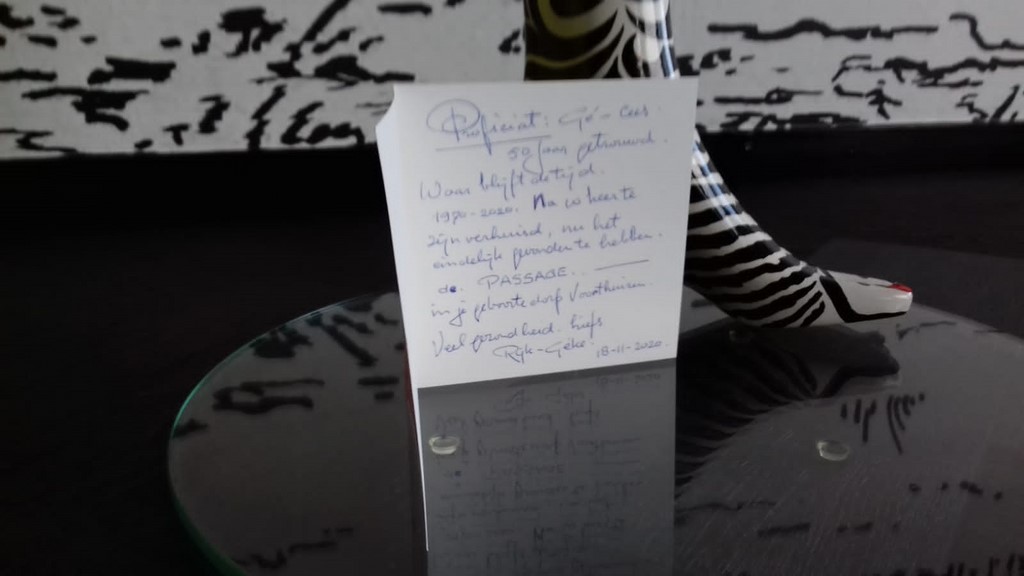 Proficiat: Gé - Cees.
50 jaar getrouwd.
Waar blijft de tijd.
1970-2020. Na 10 keer te
zijn verhuisd, nu het
eindelijk gevonden te hebben.
de. PASSAGE.
in je geboortedorp Voorthuizen.
Veel gezondheid. liefs
Rijk-Géke! 18-11-2020.